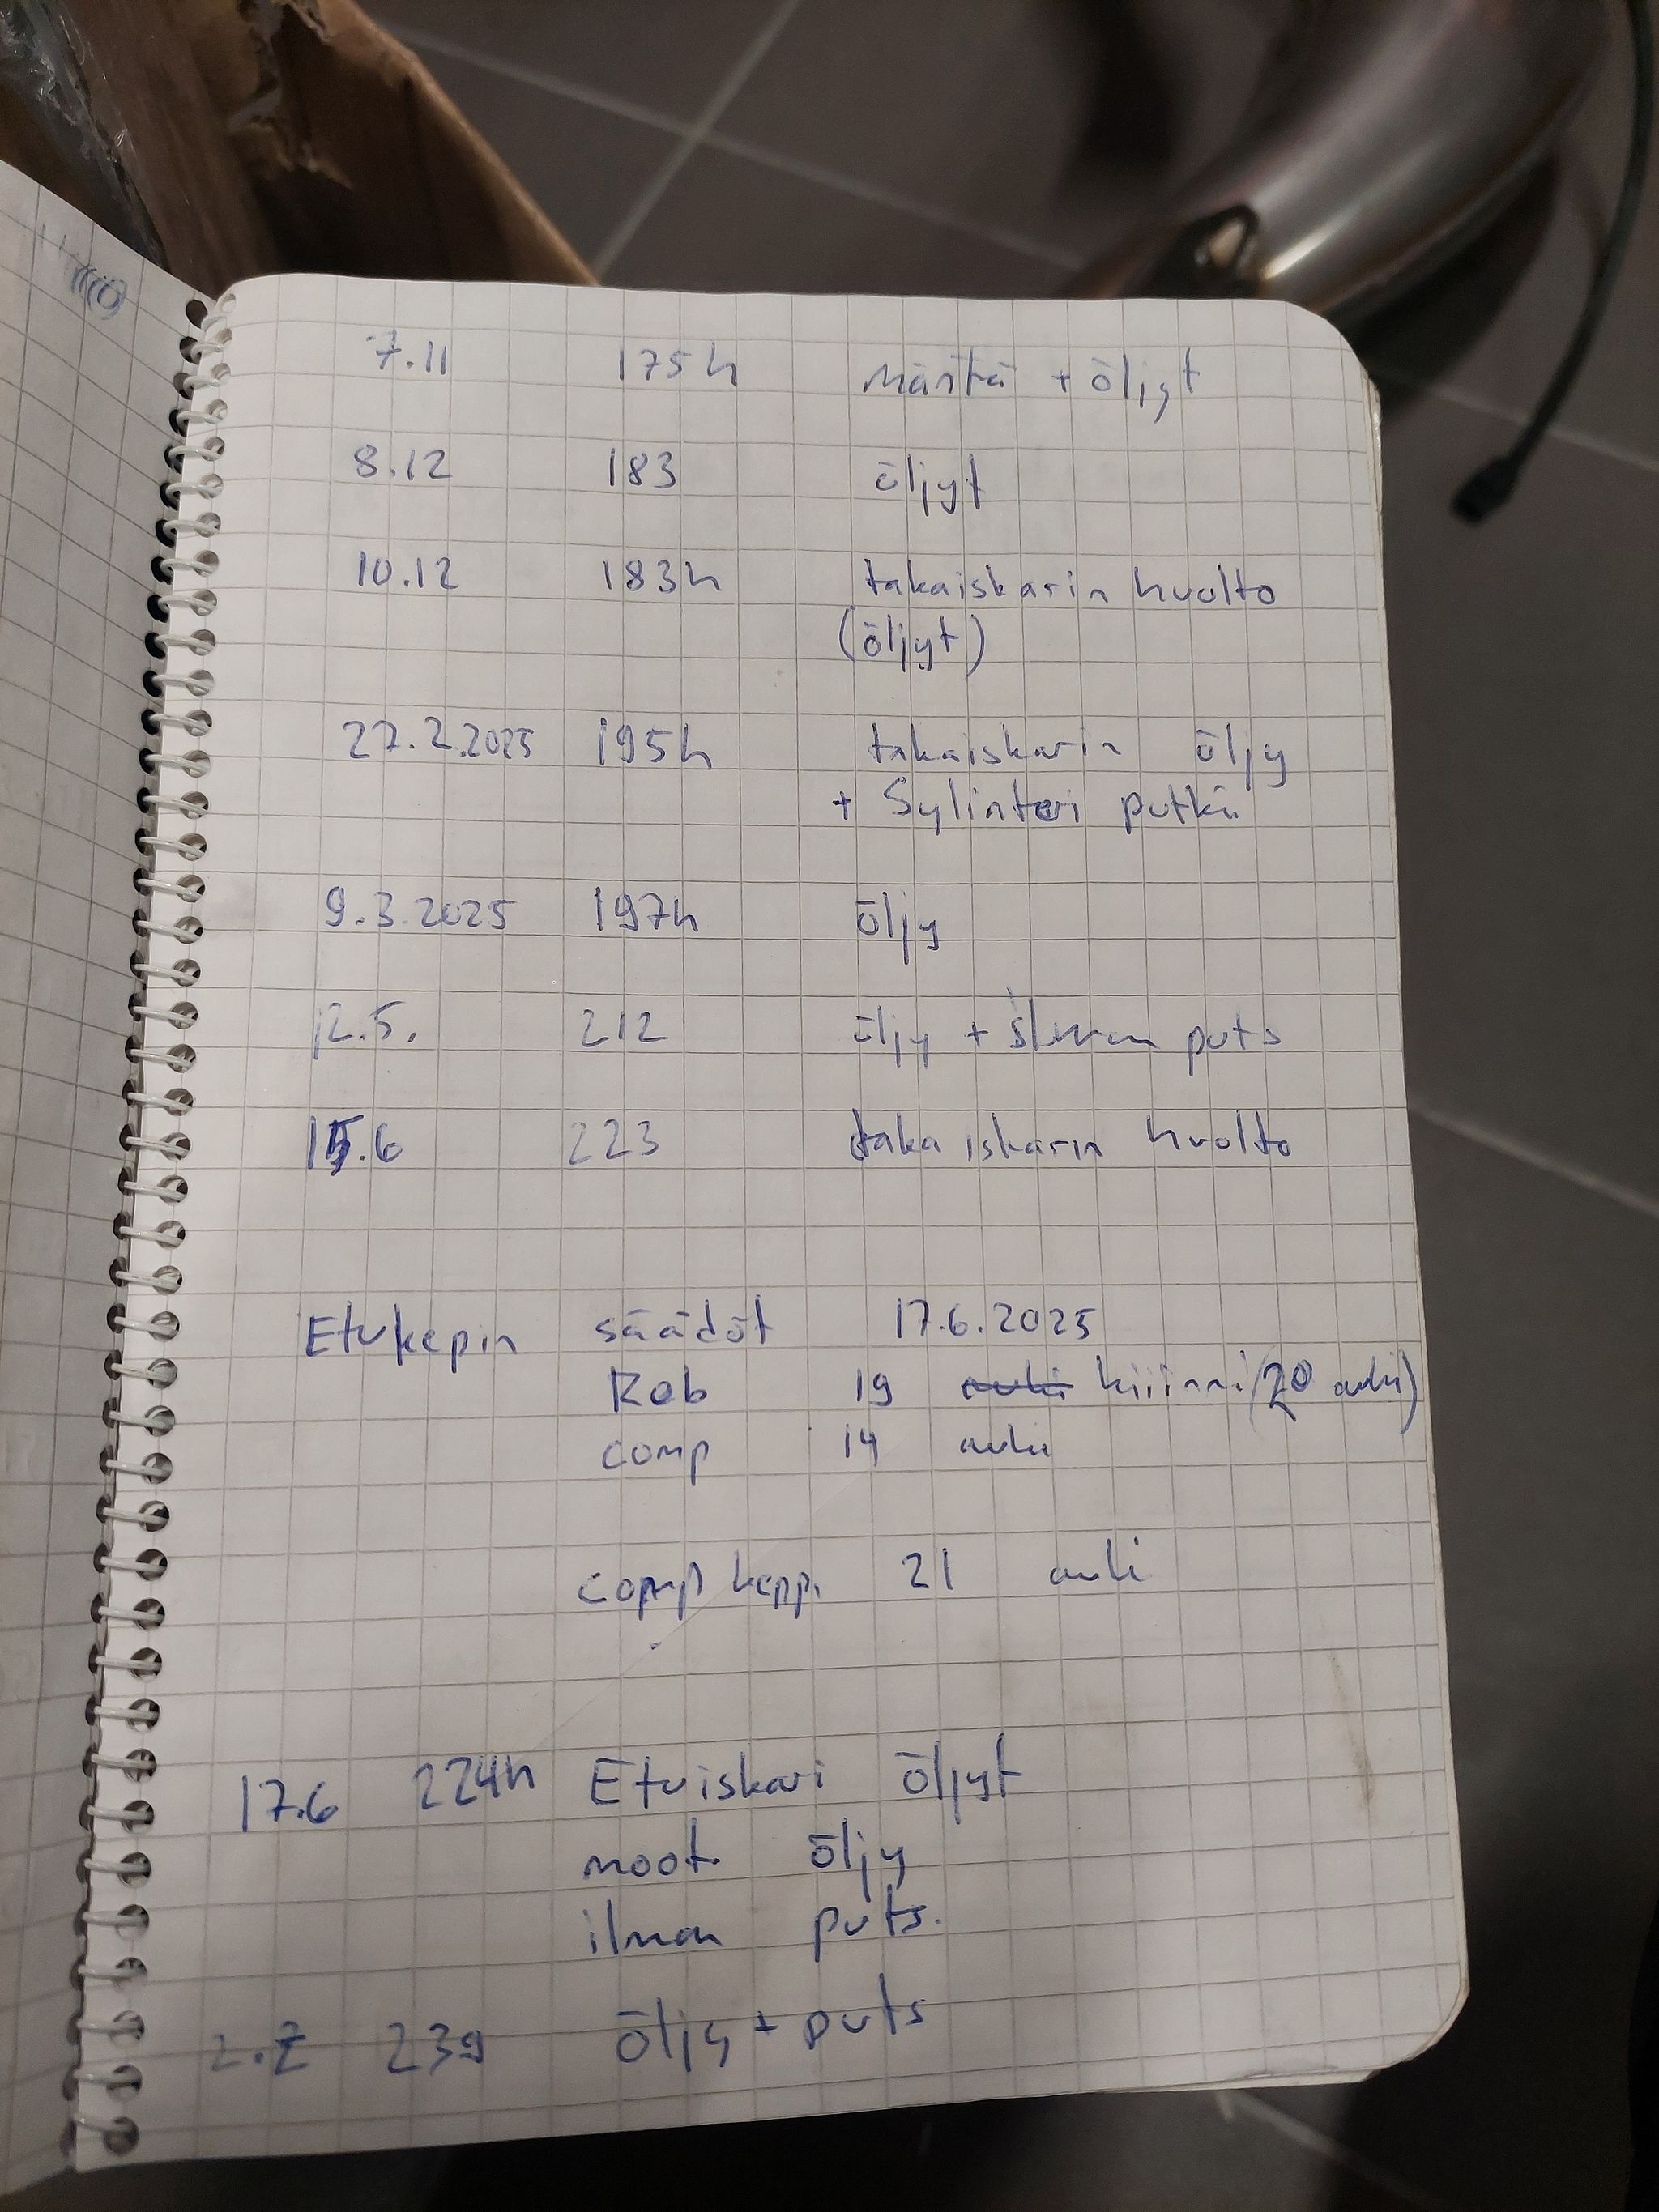 7.11 175h Mäntä + öljyt
8.12 183 öljyt
10.12 183h takaiskarin huolto
(öljyt)
27.2.2025 195h takaiskarin öljy
+ Sylinteri putki
9.3.2025 197h öljy
12.5. 212 öljy + ilman puts
15.6 223 takaiskarin huolto
Etukepin säädöt 17.6.2025
Reb 19 auki kiinni (20 auki)
comp 14 auki
comp keppi 21 auki
17.6 224h Etuiskari öljyt
moot öljy
ilman puts.
2.7 239 öljy + puts